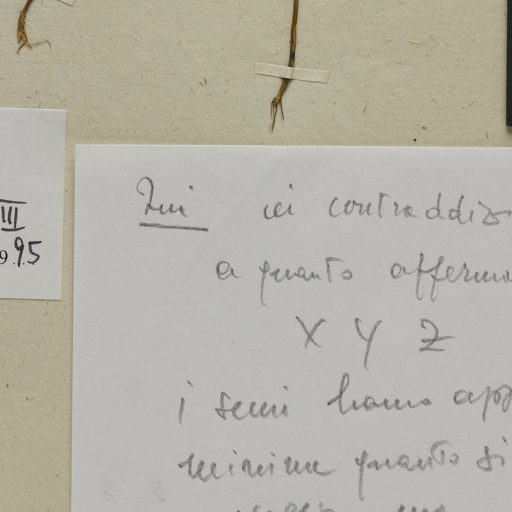 III
9.95
Qui in contraddiz
a quanto afferma
X Y Z
i semi hanno app
minime quanto si